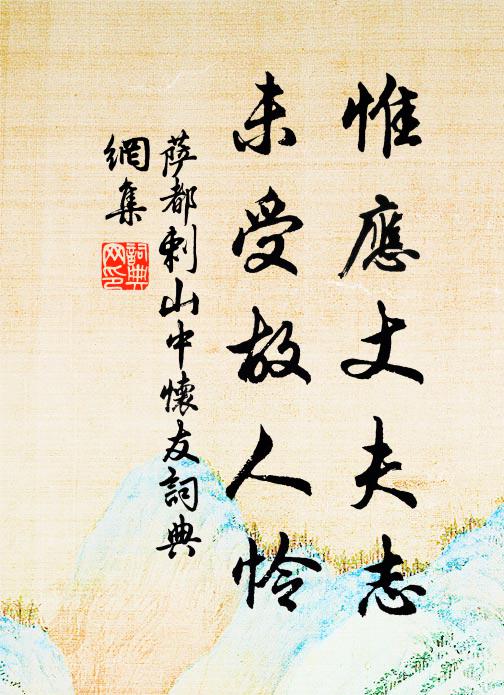 惟應丈夫志
未受故人怜
薩都剌山中懷友詞典
網集
詞典
网印